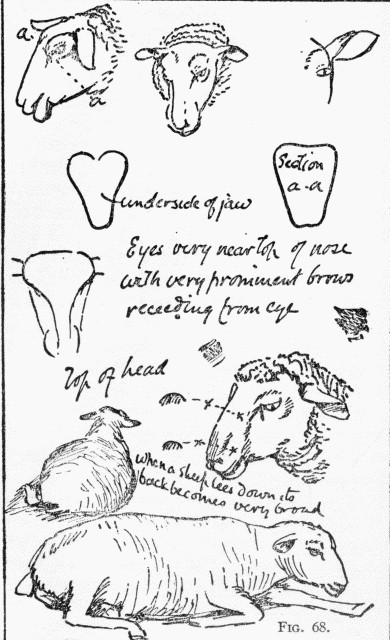 a.
a
Section
a-a
underside of jaw
Eyes very near top of nose
with very prominent brows
receeding from eye
Top of head
when a sheep lees down its
back becomes very broad
FIG. 68.